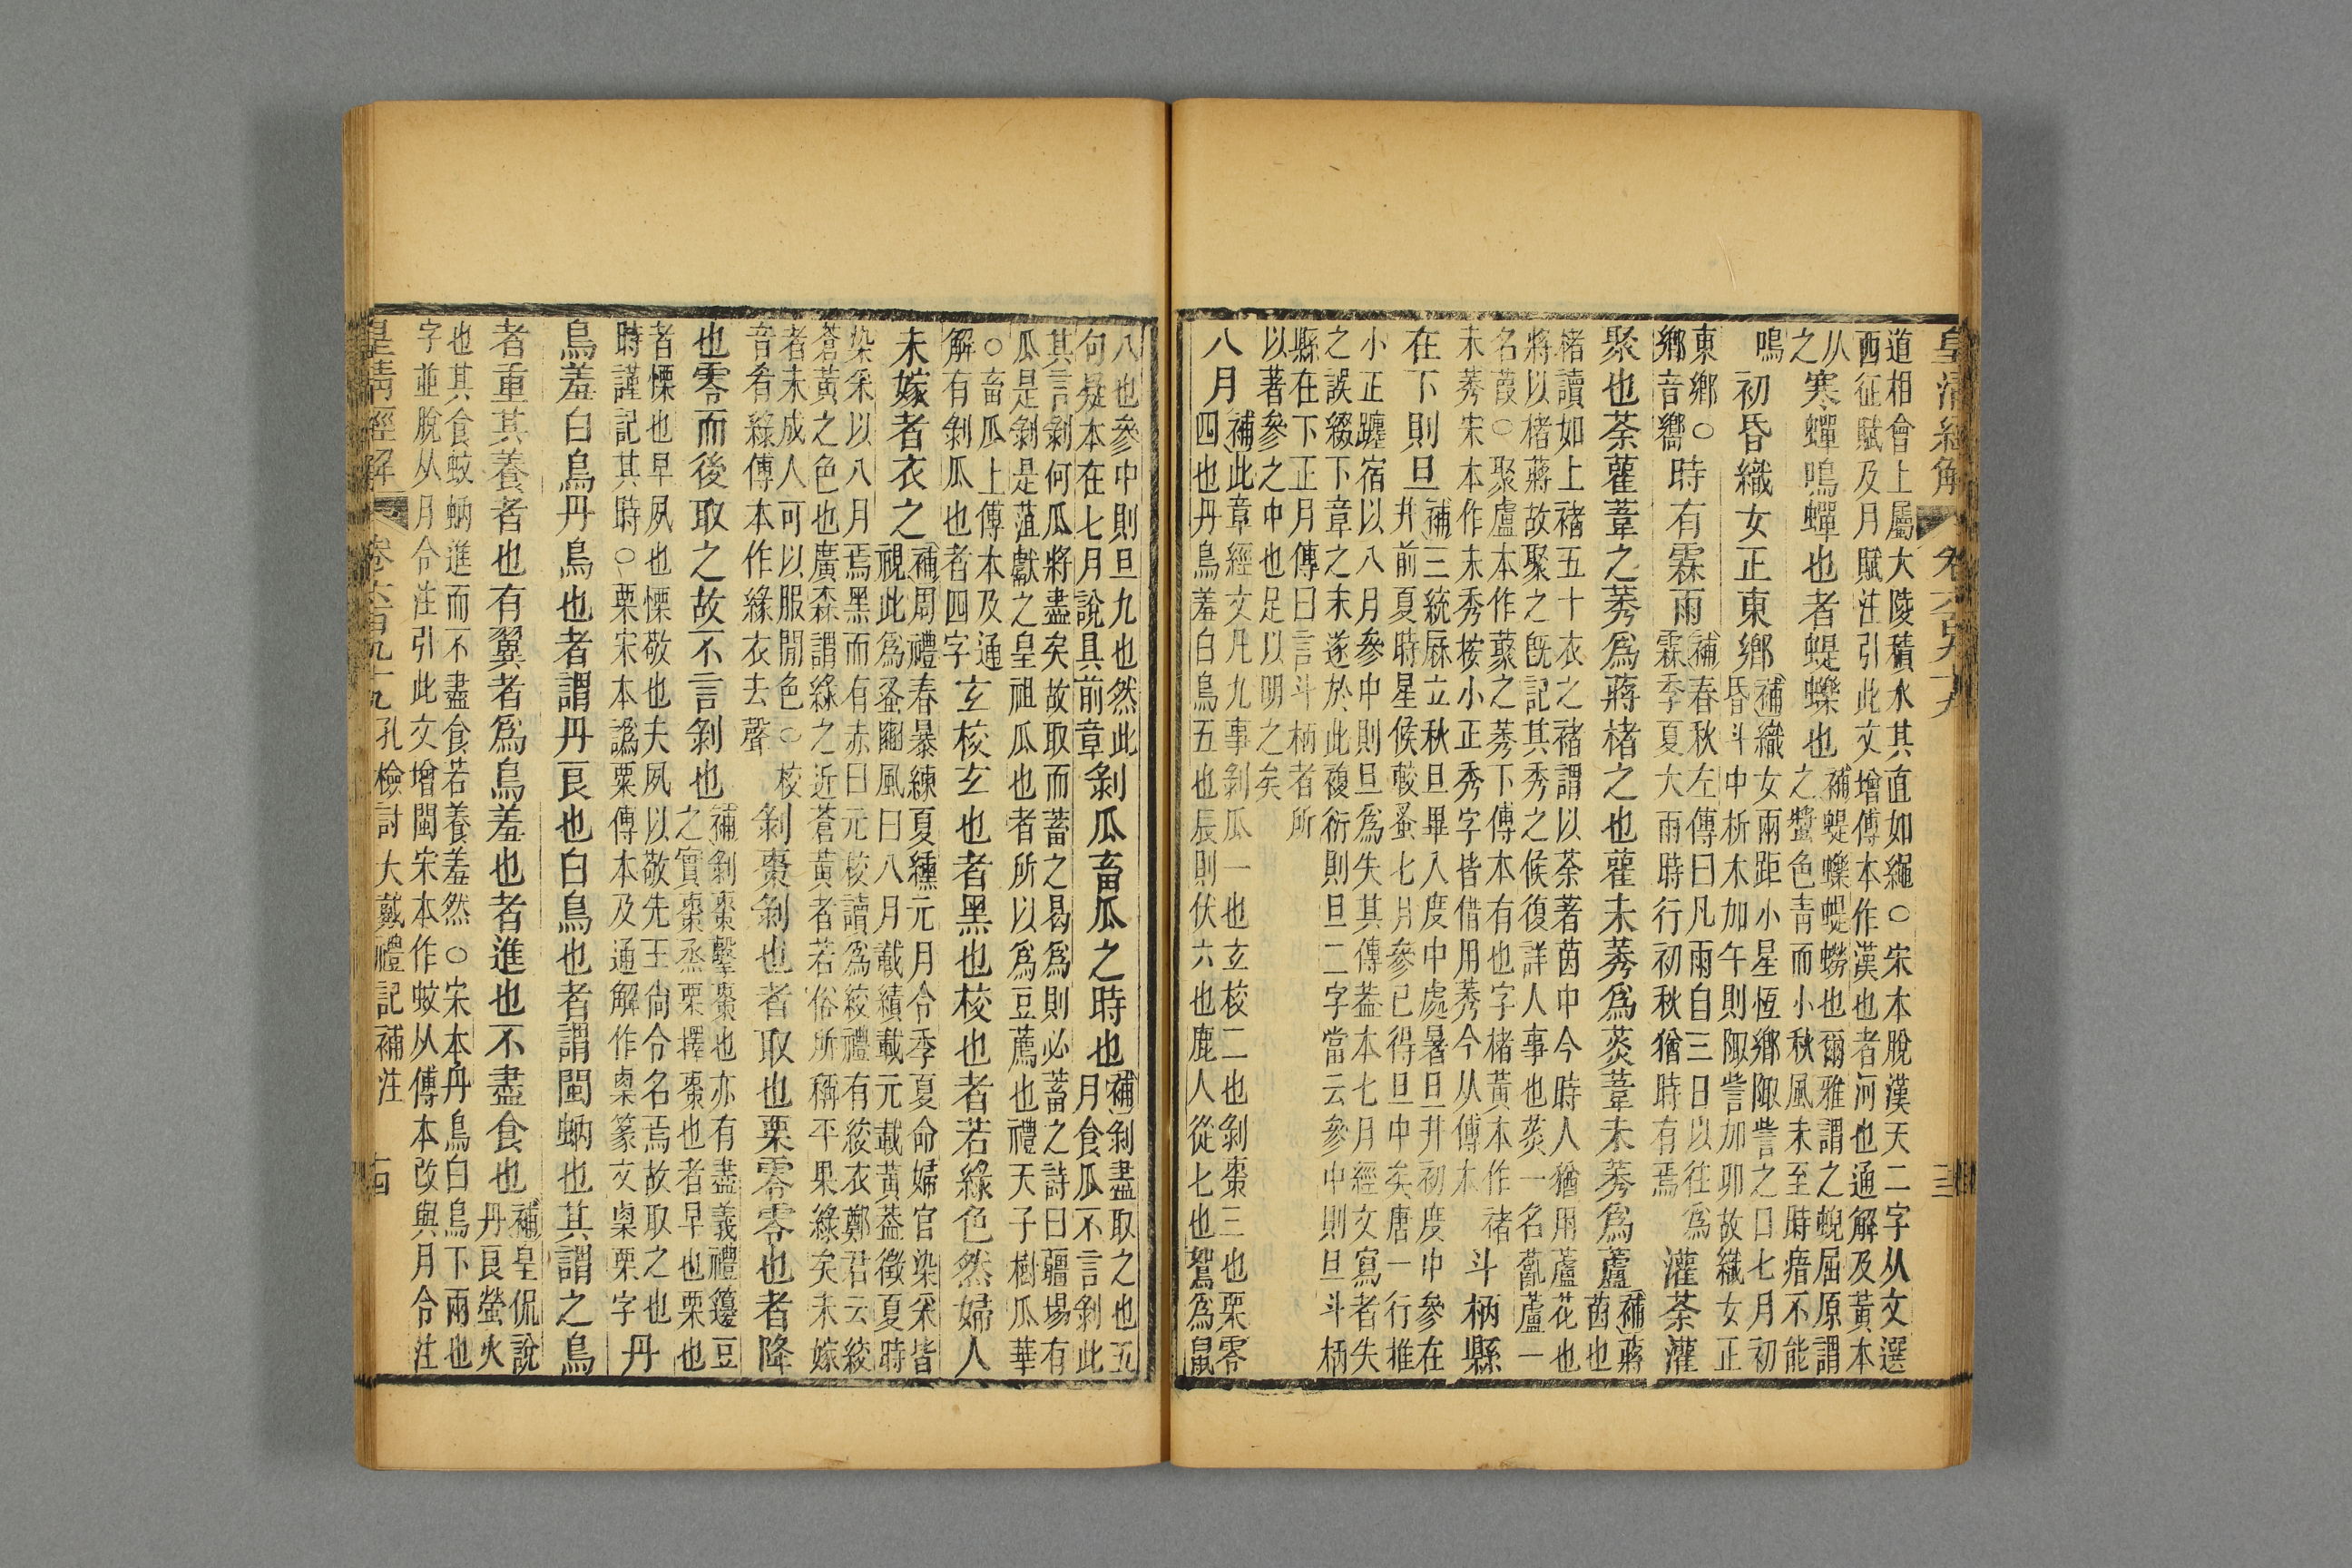 皇清經解
卷六百九十九
道相會上屬大陵積水其直如繩○宋本脫漢天二字从文選
西征賦及月賦注引此文增傅本作漢也者河也通解及黃本
从
之
寒蟬鳴蟬也者蝭蠑也
補蝭蠑蝭蟧也爾雅謂之蜺屈原謂
之螿色青而小秋風未至時瘖不能
鳴
初昏織女正東鄉
補織女兩距小星恆鄉陬訾之口七月初
昏斗中析木加午則陬訾加卯故織女正
東鄉○
鄉音嚮
時有霖雨
補春秋左傳曰凡雨自三日以往爲
霖季夏大雨時行初秋猶時有焉
灌荼灌
聚也荼雚葦之莠爲蔣楮之也雚未莠爲菼葦未莠爲蘆
補蔣
茵也
楮讀如上褚五十衣之褚謂以荼著茵中今時人猶用蘆花也
將以楮蔣故聚之旣記其秀之候復詳人事也菼一名薍蘆一
名葭○聚盧本作蓃之莠下傅本有也字楮黃本作褚
未莠宋本作未秀按小正秀字皆借用莠今从傅本
斗柄縣
在下則旦
補三統厤立秋旦畢八度中處暑旦井初度中參在
井前夏時星候較蚤七月參已得旦中矣唐一行推
小正躔宿以八月參中則旦爲失其傳葢本七月經文寫者失
之誤綴下章之末遂於此複衍則旦二字當云參中則旦斗柄
縣在下正月傳曰言斗柄者所
以著參之中也足以明之矣
八月
補此章經文凡九事剝瓜一也玄校二也剝棗三也栗零
四也丹鳥羞白鳥五也辰則伏六也鹿人從七也鴽爲鼠
八也參中則旦九也然此
句疑本在七月說具前章
剝瓜畜瓜之時也
補剝盡取之也五
月食瓜不言剝此
其言剝何瓜將盡矣故取而蓄之曷爲則必蓄之詩曰疆埸有
瓜是剝是菹獻之皇祖瓜也者所以爲豆薦也禮天子樹瓜華
○畜瓜上傅本及通
解有剝瓜也者四字
玄校玄也者黑也校也者若綠色然婦人
未嫁者衣之
補周禮春暴練夏纁元月令季夏命婦官染采皆
視此爲蚤豳風曰八月載績載元載黃葢徵夏時
染采以八月焉黑而有赤曰元校讀爲絞禮有絞衣鄭君云絞
蒼黃之色也廣森謂綠之近蒼黃者若俗所稱平果綠矣未嫁
者未成人可以服閒色○校
音肴綠傅本作緣衣去聲
剝棗剝也者取也栗零零也者降
也零而後取之故不言剝也
補剝棗擊棗也亦有盡義禮籩豆
之實棗烝栗擇棗也者早也栗也
者慄也早夙也慄敬也夫夙以敬先王尙令名焉故取之也
時謹記其時○栗宋本譌粟傅本及通解作㮚篆文㮚栗字
丹
鳥羞白鳥丹鳥也者謂丹良也白鳥也者謂閩蚋也其謂之鳥
者重其養者也有翼者爲鳥羞也者進也不盡食也
補皇侃說
丹良螢火
也其食蚊蚋進而不盡食若養羞然○宋本丹鳥白鳥下兩也
字並脫从月令注引此文增閩宋本作蚊从傅本改與月令注
皇清經解
卷六百九十九
孔檢討大戴禮記補注
十四